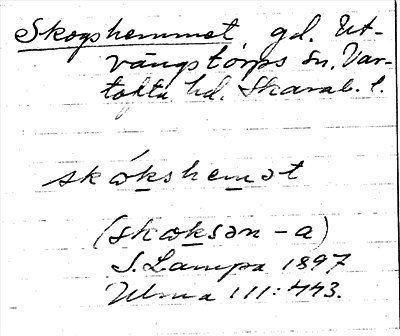 Skogshemmet gd. Ut-
vängstorps sn. Var-
tofta hd. Skarab. l.
skókshemət
(skoksən -a)
S. Lampa 1897
Ulma 111:443.